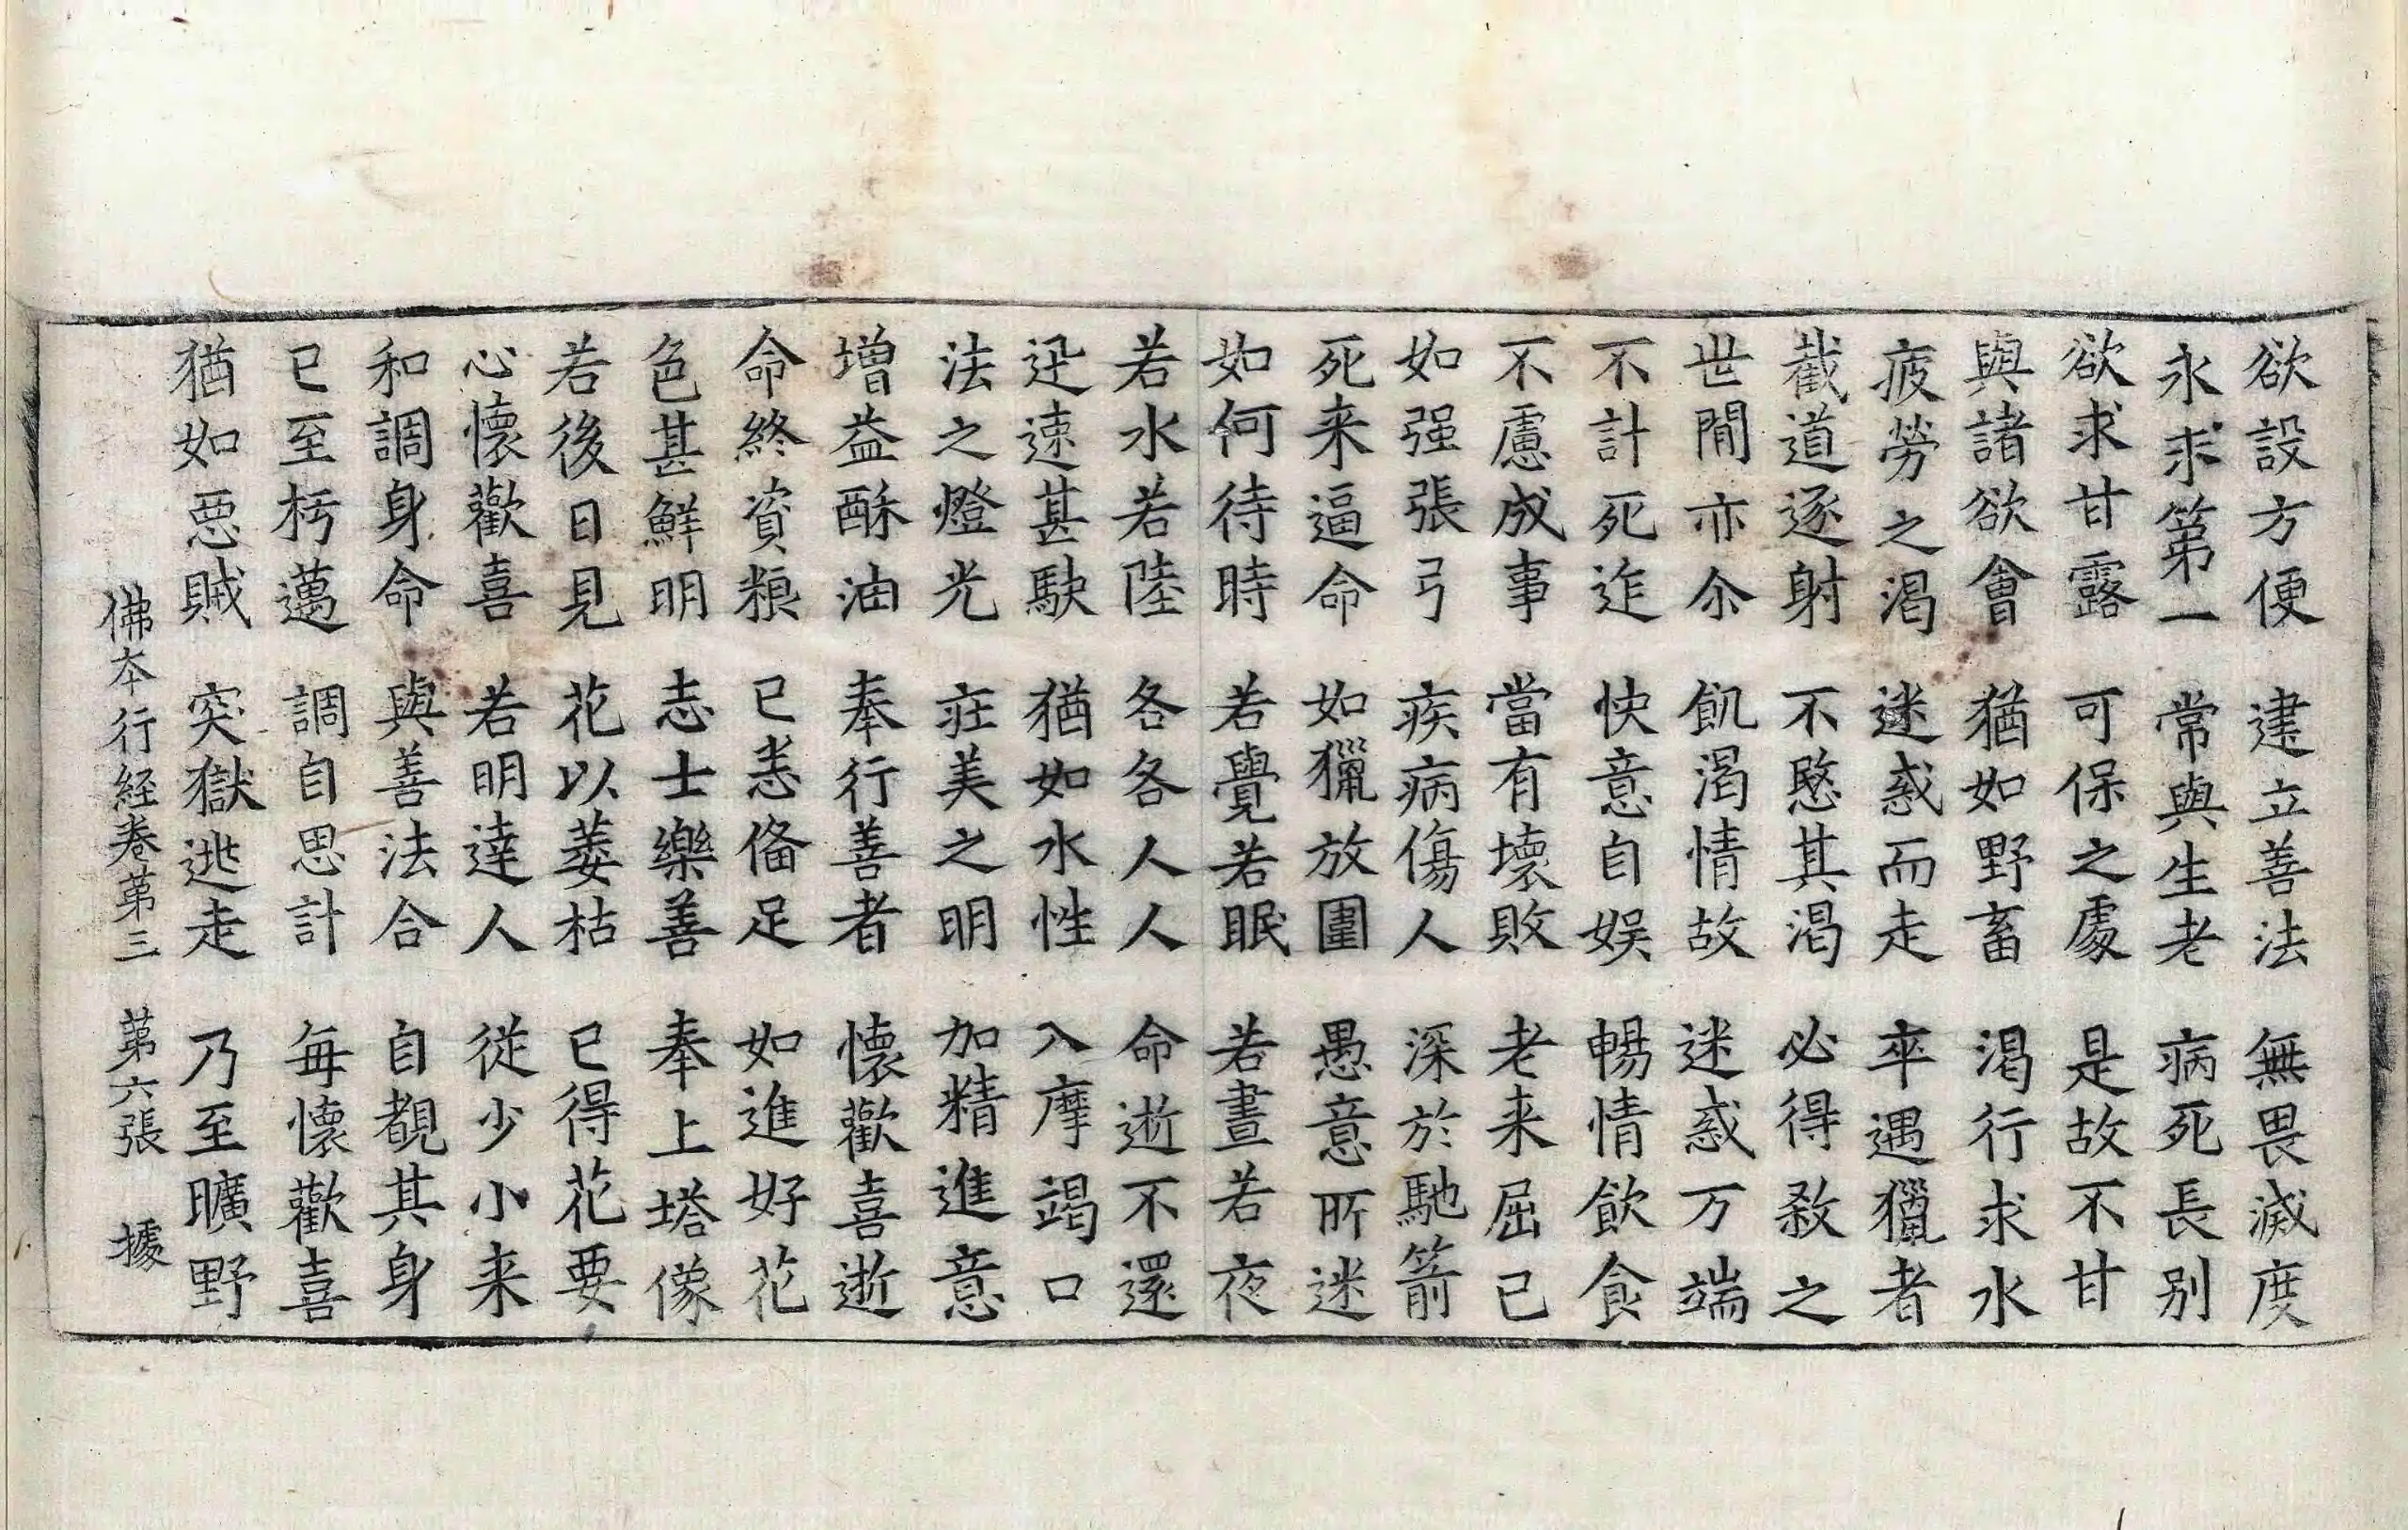 欲設方便 建立善法 無畏滅度
永求第一 常與生老 病死長別
欲求甘露 可保之處 是故不甘
與諸欲會 猶如野畜 渴行求水
疲勞之渴 迷惑而走 卒遇獵者
截道逐射 不愍其渴 必得煞之
世間亦尒 飢渴情故 迷惑万端
不計死迮 快意自娱 暢情飲食
不慮成事 當有壞敗 老来屈己
如强張弓 疾病傷人 深於馳箭
死来逼命 如獵放圍 愚意所迷
如何待時 若覺若眠 若晝若夜
若水若陸 各各人人 命逝不還
迅速甚駛 猶如水性 入摩竭口
法之燈光 莊美之明 加精進意
增益酥油 奉行善者 懷歡喜逝
命終資粮 已恚俻足 如進好花
色甚鮮明 志士樂善 奉上塔像
若後日見 花以萎枯 已得花要
心懷歡喜 若明達人 從少小来
和調身命 與善法合 自覩其身
已至朽邁 調自思計 每懷歡喜
猶如惡賊 突獄逃走 乃至曠野
佛夲行経卷苐三 苐六張 據